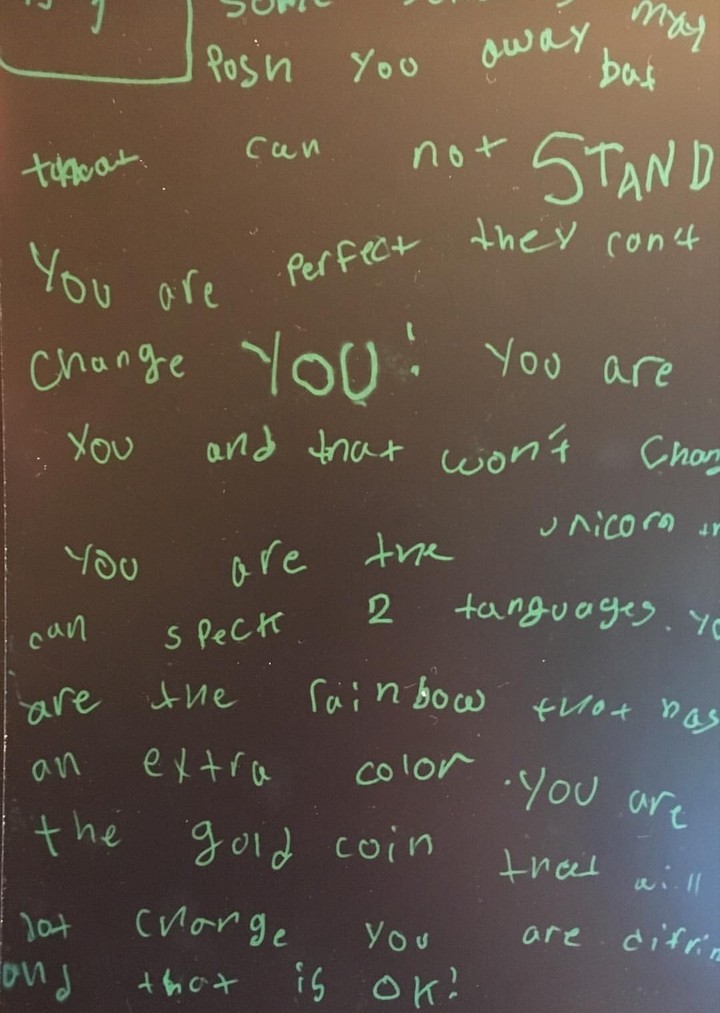 may
Posh you away but
that can not STAND
You are perfect they can't
change YOU! You are
you and that won't Chan
You are the unicorn
can speck 2 languages. Yo
are the rainbow that has
an extra color. You are
the gold coin that will
not change you are difrin
and that is OK!